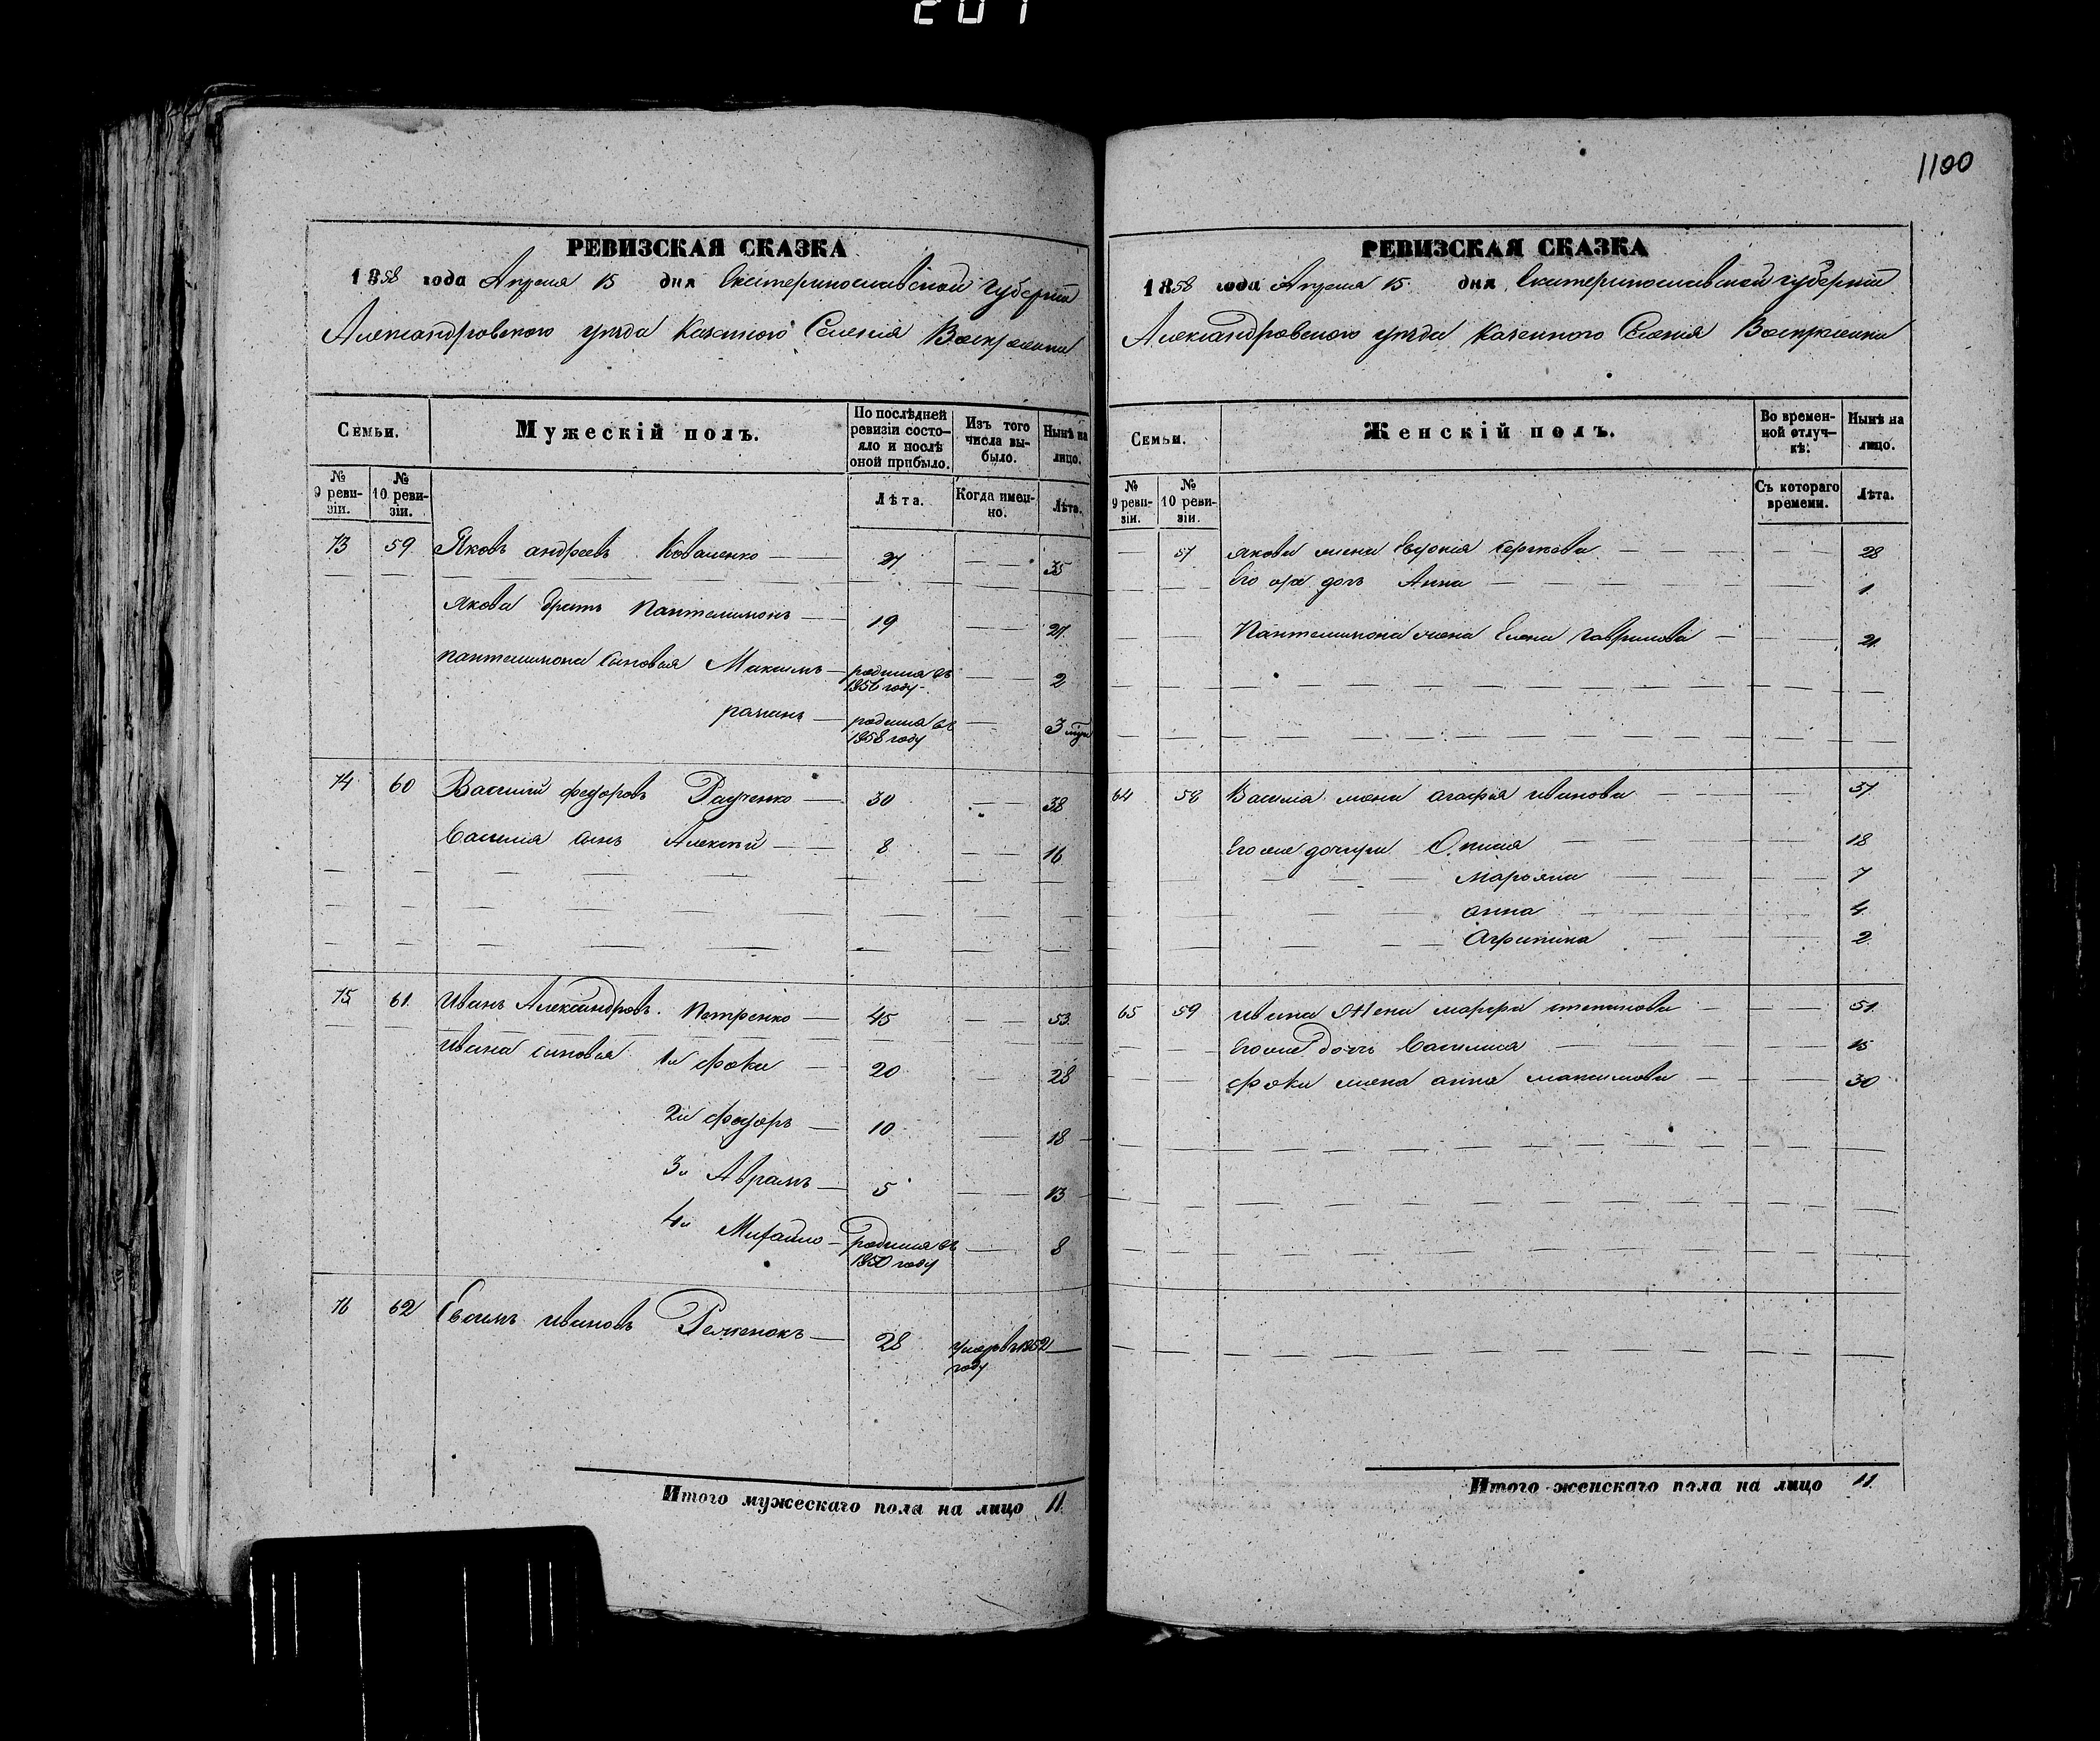 201
РЕВИЗСКАЯ СКАЗКА
1858 года Апреля 15 дня Екатеринославской губернiи
Александровского уѣзда Казенного Селенiя Воскресенки
Семьи.
Мужескiй полъ.
По послѣдней ревизiи состо-
яло и послѣ
оной прибыло.
Изъ того
числа вы-
было.
Нынѣ на
лицо.
№
9 реви-
зiи.
№
10 реви-
зiи.
Лѣта.
Когда имен-
но.
Лѣта.
73 59 Яковъ андреевъ Коваленко 27 35
Якова братъ Пантелимонъ 19 27
пантелимона сыновья Максимъ родился въ 2
1856 году
романъ родился въ 3 мѣся
1858 году
74 60 Василий федоровъ Радченко 30 38
Василия сынъ Алексѣй 8 16
75 61 Иванъ Александровъ Петренко 45 53
Ивана сыновья 1й фока 20 28
2й федоръ 10 18
3й Аврамъ 5 13
4й Михайло родился въ 8
1850 году
76 62 Евсимъ ивановъ 28 умеръ въ 1852
году
Итого мужескаго пола на лицо 11
1100
РЕВИЗСКАЯ СКАЗКА
1858 года Апреля 15 дня Екатеринославской губернiи
Александровского уѣзда казенного Селенiя Воскресенки
Семьи.
Женскiй полъ.
Во времен-
ной отлуч-
кѣ.
Нынѣ на
лицо.
№
9 реви-
зiи.
№
10 реви-
зiи.
Съ котораго
времени.
Лѣта.
57 якова жена Евдокiя сергѣева 28
Его дочь Анна 1
Пантелимона жена Елена гаврилова 21
64 58 Василiя жена агафiя иванова 37
Его же дочери 18
Марьяна 7
анна 4
Агрипина 2
65 59 ивана жена марфа степанова 51
Его же дочь Василиса 15
фоки жена анна максимова 30
Итого женскаго пола на лицо 11